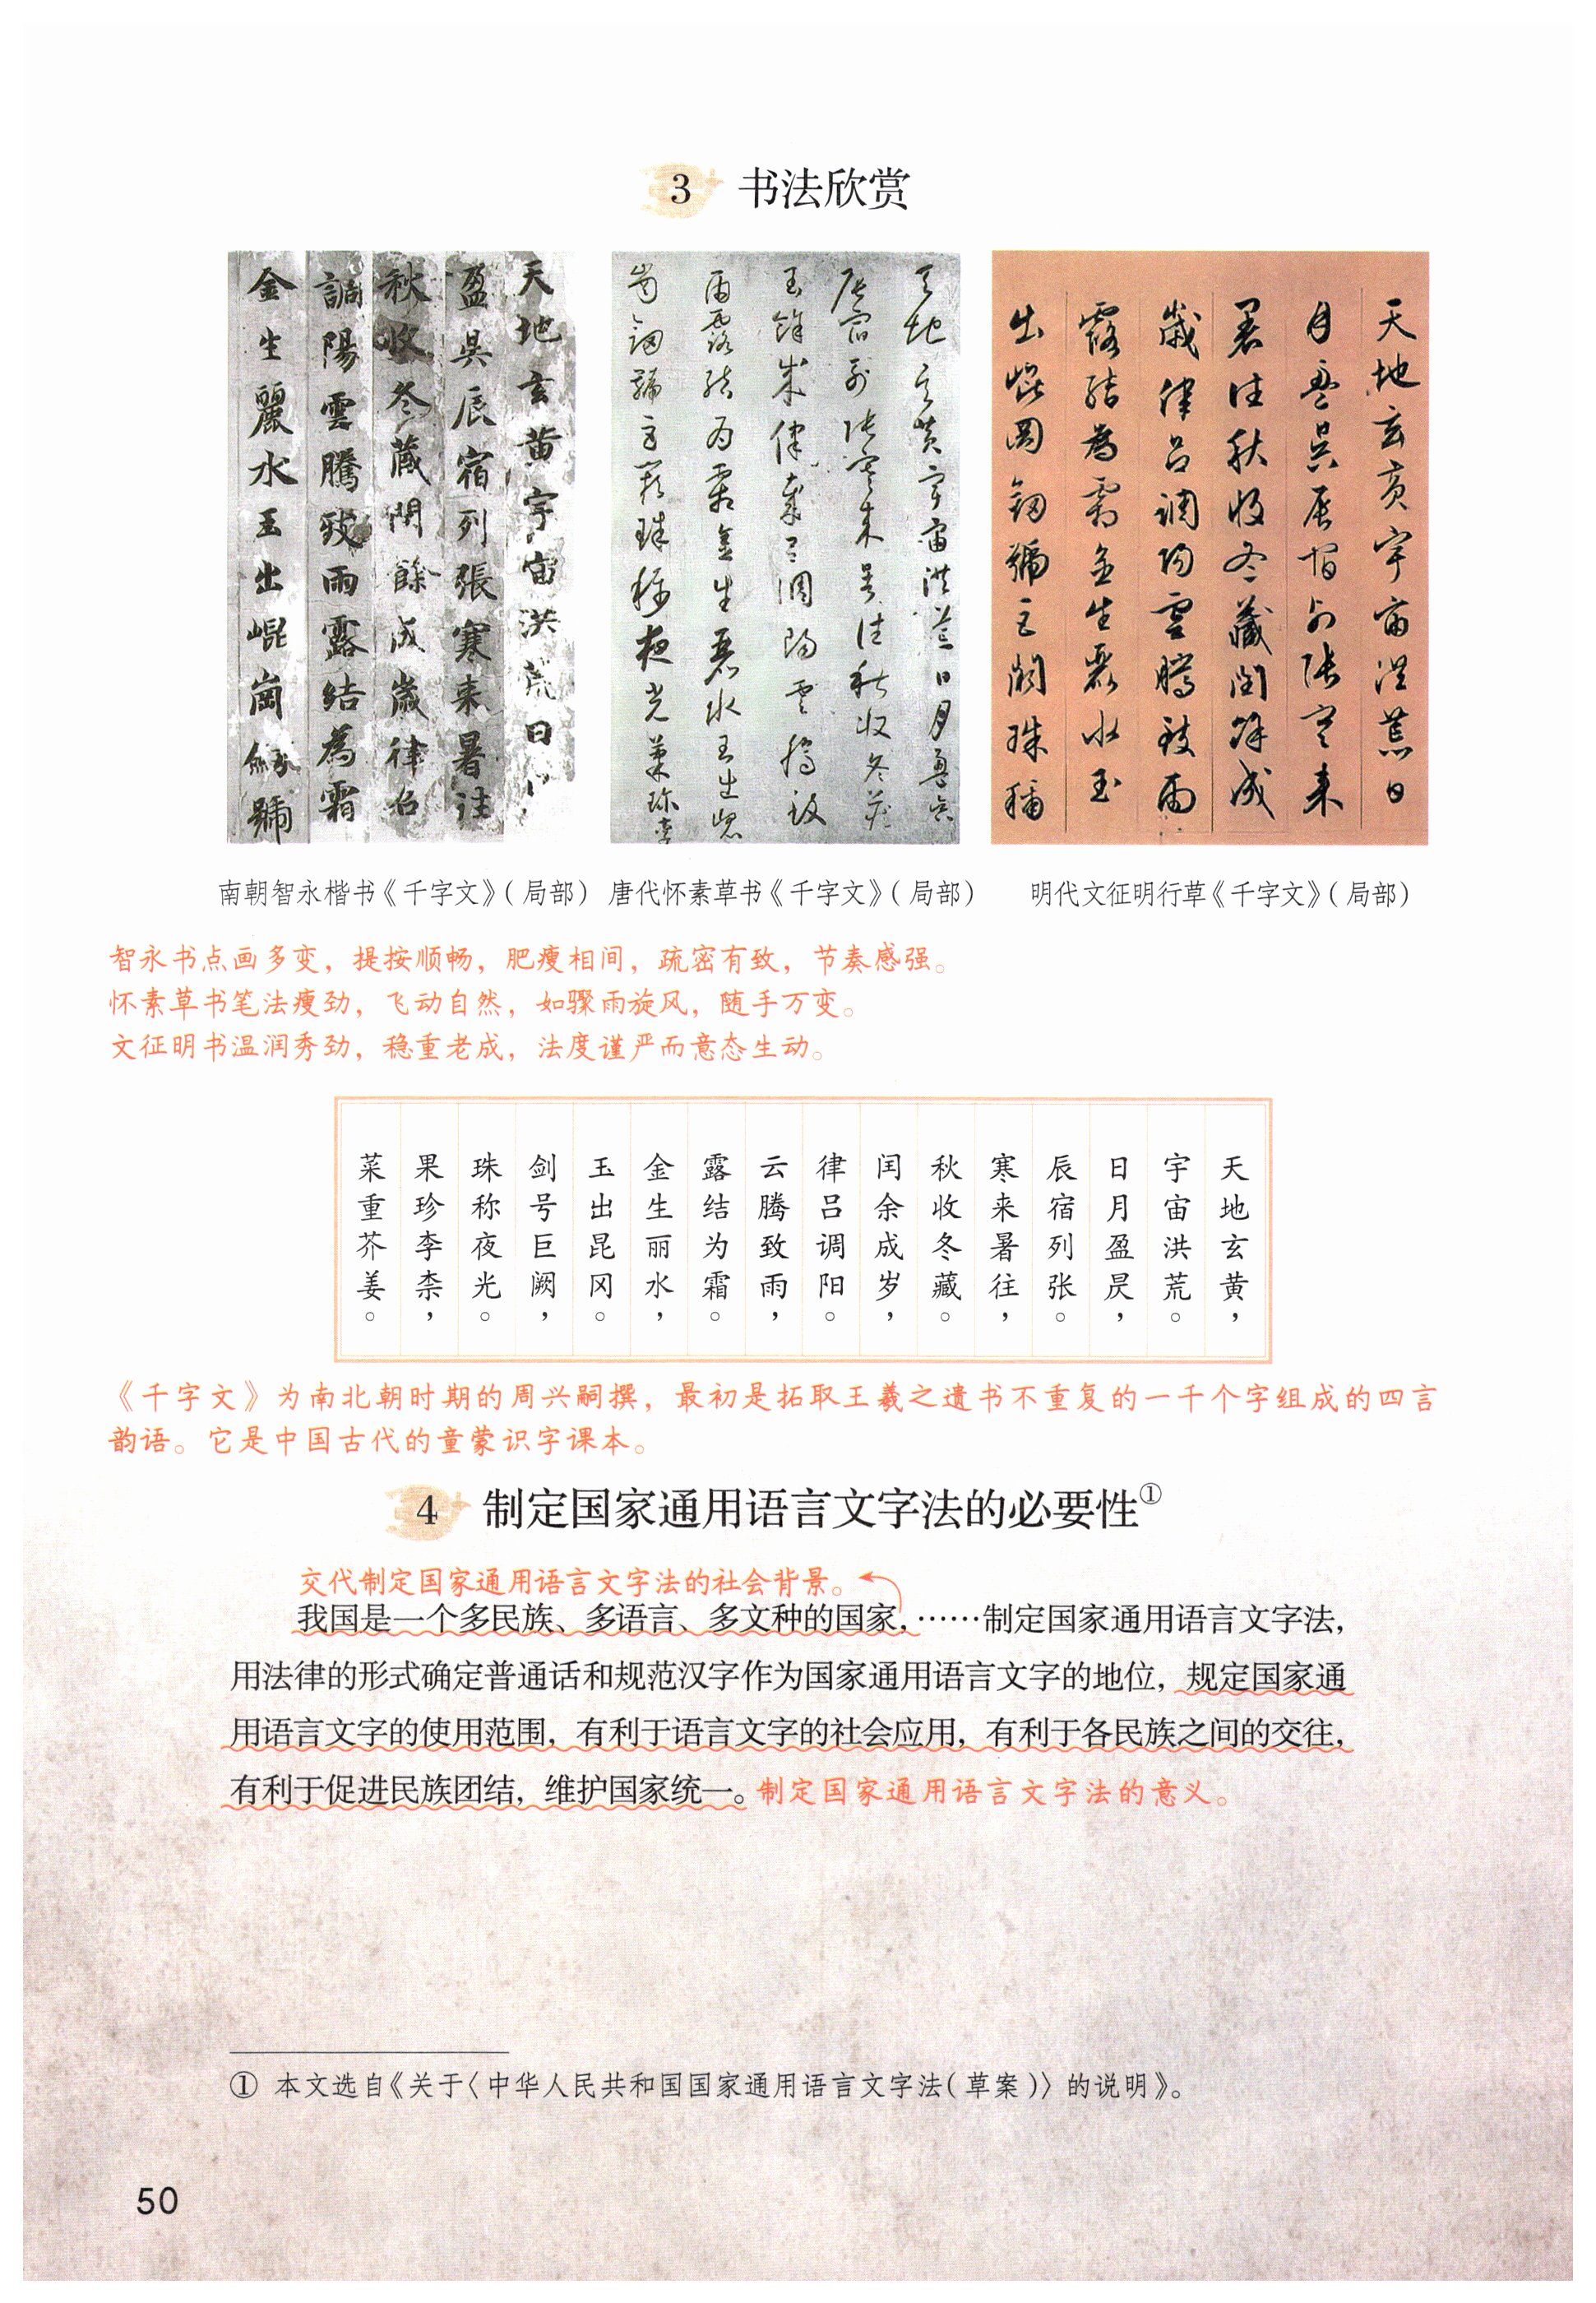 3 书法欣赏
天地玄黄宇宙洪荒日
盈昃辰宿列張寒来暑往
秋收冬藏閏餘成歲律召
調陽雲騰致雨露結為霜
金生麗水玉出崐崗劔號
天地玄黄宇宙洪荒日月盈昃
辰宿列张寒来暑往秋收冬藏
天地玄黄宇宙洪荒日
月盈昃辰宿列张寒来
暑往秋收冬藏闰馀成
歲律吕调阳雲腾致雨
露结為霜金生麗水玉
出崐岡劔號巨阙珠稱
南朝智永楷书《千字文》（局部）
唐代怀素草书《千字文》（局部）
明代文征明行草《千字文》（局部）
智永书点画多变，提按顺畅，肥瘦相间，疏密有致，节奏感强。
怀素草书笔法瘦劲，飞动自然，如骤雨旋风，随手万变。
文征明书温润秀劲，稳重老成，法度谨严而意态生动。
天地玄黄，
宇宙洪荒。
日月盈昃，
辰宿列张。
寒来暑往，
秋收冬藏。
闰余成岁，
律吕调阳。
云腾致雨，
露结为霜。
金生丽水，
玉出昆冈。
剑号巨阙，
珠称夜光。
果珍李柰，
菜重芥姜。
《千字文》为南北朝时期的周兴嗣撰，最初是拓取王羲之遗书不重复的一千个字组成的四言
韵语。它是中国古代的童蒙识字课本。
4 制定国家通用语言文字法的必要性①
交代制定国家通用语言文字法的社会背景。
我国是一个多民族、多语言、多文种的国家，……制定国家通用语言文字法，
用法律的形式确定普通话和规范汉字作为国家通用语言文字的地位，规定国家通
用语言文字的使用范围，有利于语言文字的社会应用，有利于各民族之间的交往，
有利于促进民族团结，维护国家统一。制定国家通用语言文字法的意义。
① 本文选自《关于〈中华人民共和国国家通用语言文字法（草案）〉的说明》。
50